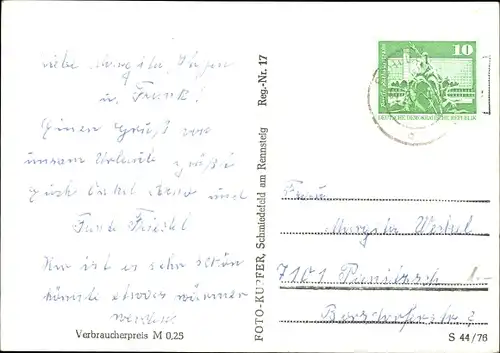 Liebe Margita, Jürgen
u. Frank!
Einen Gruß von
unserem Urlaub
Euch Onkel und
Tante Friedel
Hier ist es sehr schön
könnte etwas wärmer
werden
Verbraucherpreis M 0,25
FOTO-KUPFER, Schmiedefeld am Rennsteig Reg.-Nr. 17
10
DEUTSCHE DEMOKRATISCHE REPUBLIK
Frau
Margita
7101 Panitzsch
S 44/76